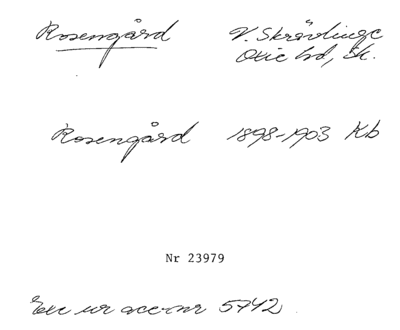 Rosengård V. Skrävlinge
Oxie hd, Sk.
Rosengård 1898-1903 Kb
Nr 23979
Exc ur acc nr 5742